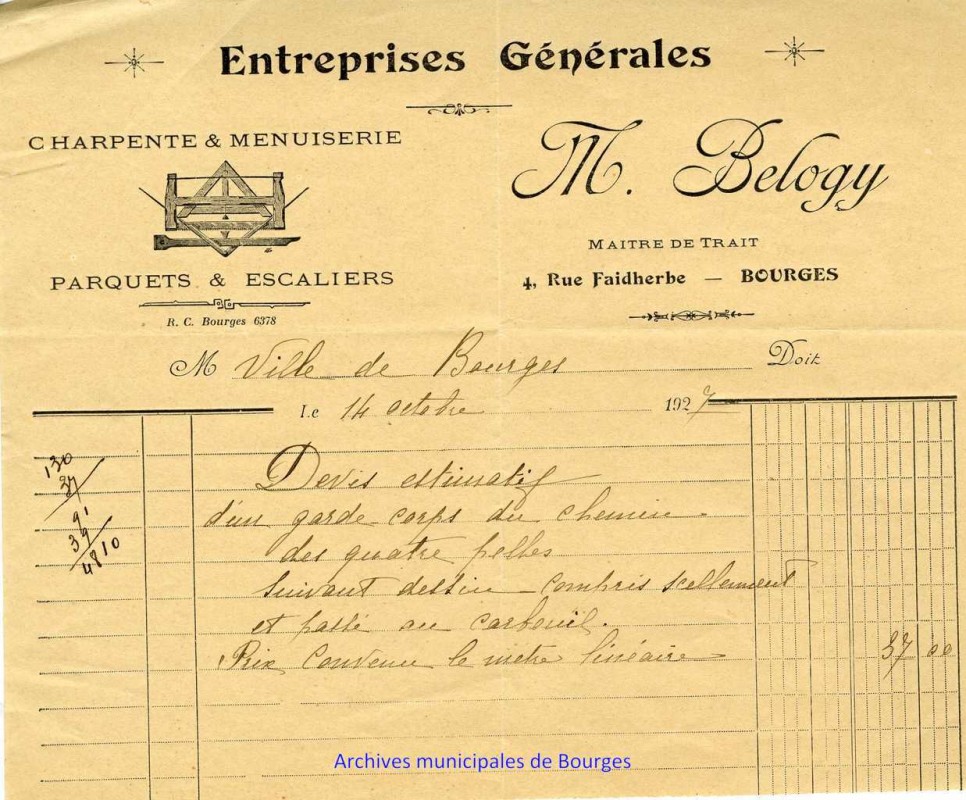 Entreprises Générales
CHARPENTE & MENUISERIE
PARQUETS & ESCALIERS
R. C. Bourges 6378
M. Belogy
MAITRE DE TRAIT
4, Rue Faidherbe — BOURGES
M Ville de Bourges Doit
Le 14 octobre 1927
130
37
91
39
4810
Devis estimatif
d'un garde-corps du chemin
des quatre pelles
suivant dessin - compris scellement
et passé au carbonil.
Prix convenu le mètre linéaire 37 00
Archives municipales de Bourges